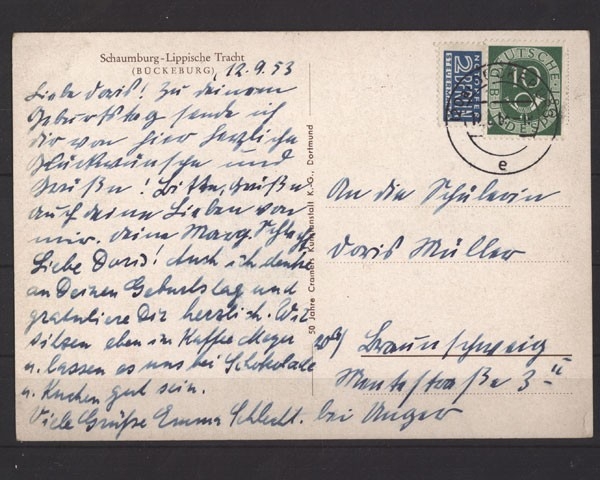 Schaumburg-Lippische Tracht
(BÜCKEBURG)
12.9.53
Liebe Doris! Zu deinem
Geburtstag sende ich
dir von hier herzliche
Glückwünsche und
Grüße! Bitte, Grüße
auch deine Lieben von
mir. deine Marg.
Liebe Doris! Auch ich denke
an Deinen Geburtstag und
gratuliere Dir herzlich. Wir
sitzen eben im Kaffee Meyer
u. lassen es uns bei Schokolade
u. Kuchen gut sein.
Viele Grüße Emma Schlecht.
50 Jahre Cramers Kunstanstalt K.-G., Dortmund
NOTOPFER
2 BERLIN
STEUERMARKE
DEUTSCHE
BUNDESPOST
10
e
An die Schülerin
Doris Müller
20b/ Braunschweig
3 II
bei Anger